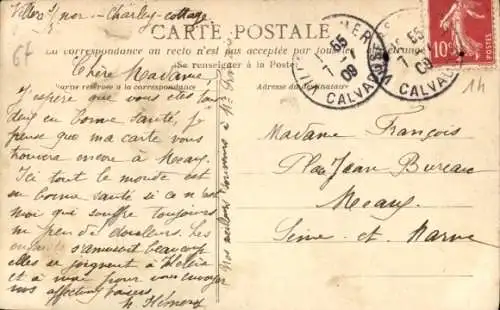 Villers s/mer - Charley-cottage
67
CARTE POSTALE
La correspondance au recto n'est pas acceptée par tous les pays étrangers
Se renseigner à la Poste
Partie réservée à la correspondance
Adresse du destinataire
VILLERS-S-MER
65
09
CALVADOS
65
7
09
CALVADOS
10c
Chère Madame,
J'espère que vous êtes tous
deux en bonne santé, je
pense que ma carte vous
trouvera encore à Meaux.
Ici tout le monde est
en bonne santé si ce n'est
moi qui souffre toujours
un peu de douleurs. Les
enfants s'amusent beaucoup
elles se joignent à
et à moi pour vous envoyer
nos affectueux baisers
Nos meilleurs souvenirs à
Madame François
Place Jean Bureau
Meaux
Seine-et-Marne
14